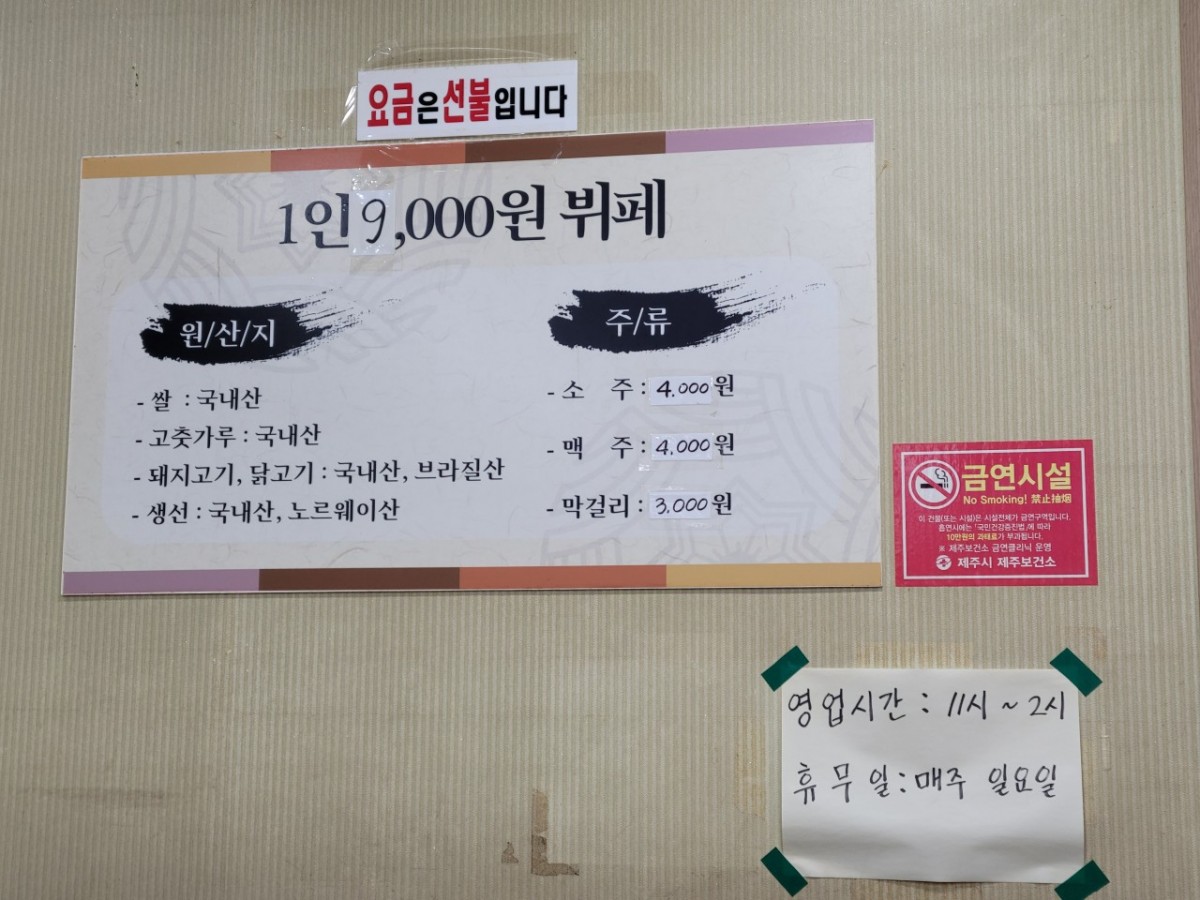 요금은선불입니다
1인 9,000원 뷔페
원/산/지
- 쌀 : 국내산
- 고춧가루 : 국내산
- 돼지고기, 닭고기 : 국내산, 브라질산
- 생선 : 국내산, 노르웨이산
주/류
- 소 주 : 4,000원
- 맥 주 : 4,000원
- 막걸리 : 3,000원
금연시설
No Smoking! 禁止抽烟
이 건물(또는 시설)은 시설전체가 금연구역입니다.
흡연시에는 「국민건강증진법」에 따라
10만원의 과태료가 부과됩니다.
※ 제주보건소 금연클리닉 운영
제주시 제주보건소
영업시간 : 11시 ~ 2시
휴무일 : 매주 일요일